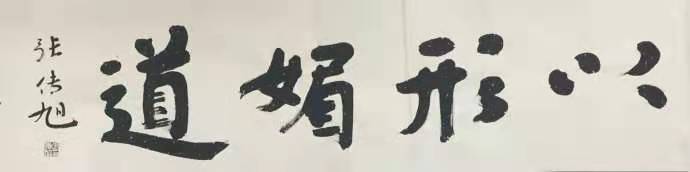 以形媚道
张传旭